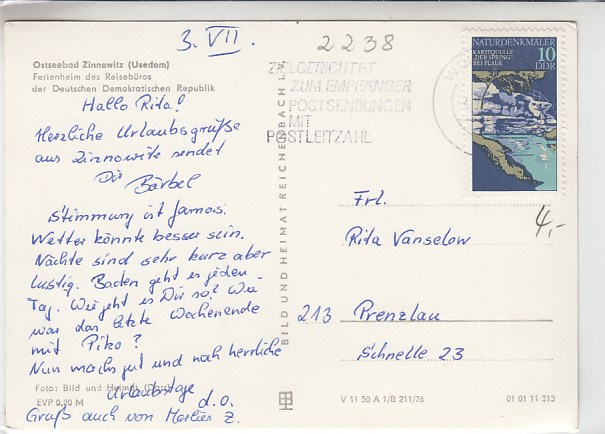 3. VII.
2238
Ostseebad Zinnowitz (Usedom)
Ferienheim des Reisebüros
der Deutschen Demokratischen Republik
Hallo Rita!
Herzliche Urlaubsgrüße
aus Zinnowitz sendet
Dir
Bärbel
Stimmung ist famos.
Wetter könnte besser sein.
Nächte sind sehr kurz aber
lustig. Baden geht es jeden
Tag. Wie geht es Dir so? Wie
war das letzte Wochenende
mit Piko?
Nun machs gut und noch herrliche
Urlaubstage
d.o.
Gruß auch von Z.
Foto: Bild und Heimat
EVP 0,20 M
BILD UND HEIMAT REICHENBACH
ZIELGERICHTET
ZUM EMPFÄNGER
POSTSENDUNGEN
MIT
POSTLEITZAHL
WO
NATURDENKMÄLER
KARSTQUELLE
"DER SPRING"
BEI PLAUE
10
DDR
4,-
Frl.
Rita Vanselow
213 Prenzlau
Schnelle 23
V 11 50 A 1/B 211/76
01 01 11 313